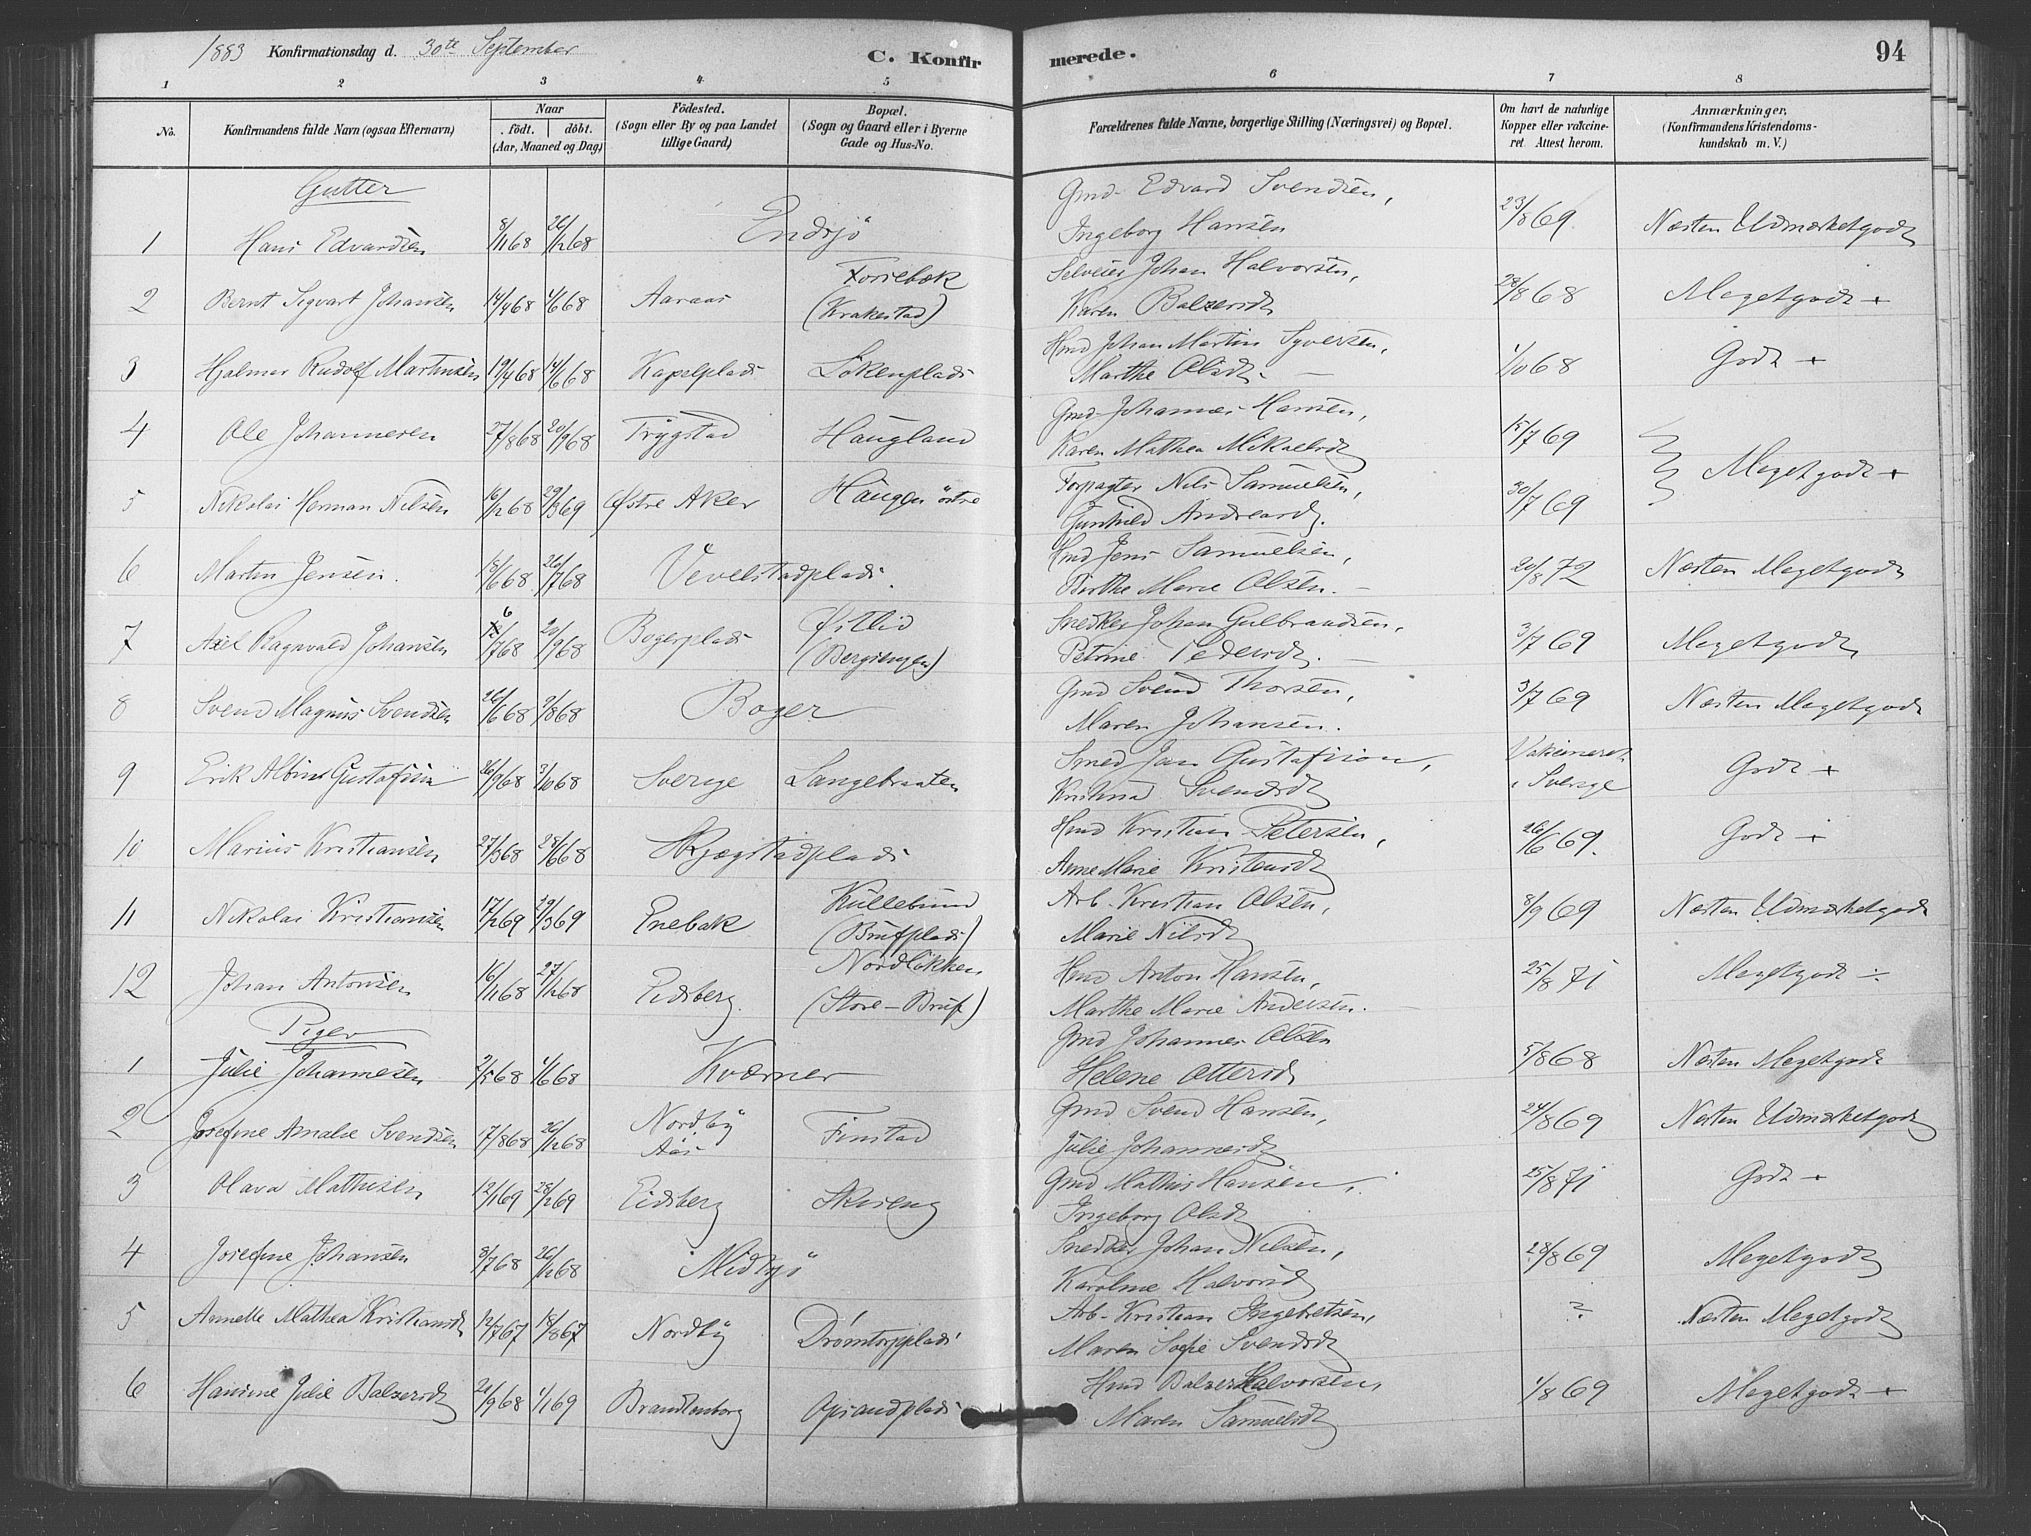 1883 Konfirmationsdag d. 30te September
C. Konfirmerede.
94
1 2 3 4 5 6 7 8
No.
Konfirmandens fulde Navn (ogsaa Efternavn)
Naar
født. døbt.
(Aar, Maaned og Dag)
Födested.
(Sogn eller By og paa Landet
tillige Gaard)
Bopæl.
(Sogn og Gaard eller i Byerne
Gade og Hus-No.
Forældrenes fulde Navne, borgerlige Stilling (Næringsvei) og Bopæl.
Om havt de naturlige
Kopper eller vakcine-
ret. Attest herom.
Anmærkninger,
(Konfirmandens Kristendoms-
kundskab m. V.)
Gutter
1 Hans Edvardsen 8/11 68 26/12 68 Endsjö Gmd. Edvard Svendsen, Ingeborg Hansen 23/8 69 Næsten Udmærketgodt
2 Bernt Sigvart Johansen 14/4 68 1/6 68 Aaraas (Krakestad) Selveier Johan Halvorsen, Karen Balzersdt 28/8 68 Megetgodt +
3 Hjalmar Rudolf Martinsen 19/4 68 14/6 68 Kapelplads Løkenplads Hmd Johan Martin Syversen, Marthe Olsdt. 1/10 68 Godt +
4 Ole Johannesen 27/8 68 20/9 68 Trygstad Haugland Gmd. Johannes Hansen, Karen Mathea Mikaelsdt 15/7 69
5 Nikolai Herman Nilsen 16/12 68 29/3 69 Østre Aker Haugen östre Forpagter Nils Samuelsen, Gunhild Andreasdt. 30/7 69 Megetgodt +
6 Martin Jensen. 15/6 68 26/7 68 Vevelstadplads. Hmd Jens Samuelsen, Birthe Marie Olsen. 20/8 72 Næsten Megetgodt
7 Axel Ragnvald Johansen 6/7 68 20/9 68 Bogerplads Østlid (Bergsengen) Snedker Johan Gulbrandsen, Petrine Pedersdt. 3/7 69 Megetgodt
8 Svend Magnus Svendsen 26/6 68 2/8 68 Boger Gmd Svend Thorsen, Maren Johansen. 3/7 69 Næsten Megetgodt
9 Erik Albin Gustafson 26/9 68 3/10 68 Sverige Langebraaten Smed Jan Gustafsson, Kristina Svendsdt Vakcineret i Sverige Godt +
10 Marius Kristiansen 27/3 68 28/6 68 Skjægstadplads Hmd Kristian Petersen, Anne Marie Kristensdt 26/6 69. Godt +
11 Nikolai Kristiansen 17/2 69 29/3 69 Enebak Kullebund (Brufplads) Arb. Kristian Olsen, Marie Nilsdt 8/9 69 Næsten Udmærketgodt
12 Johan Antonsen 16/11 68 27/12 68 Eidsberg. Nordløkken (Store-Bruf) Hmd Anton Hansen, Marthe Marie Andersen. 25/8 71 Megetgodt ÷
Piger
1 Julie Johannesen 2/5 68 1/6 68 Kværner Gmd Johannes Olsen Helene Ottersdt 5/8 68 Næsten Megetgodt
2 Josefine Amalie Svendsen 17/8 68 26/12 68 Nordby Aas Finstad Gmd Svend Hansen, Julie Johannesdt 24/8 69 Næsten Udmærketgodt
3 Olava Mathisen 12/1 69 28/2 69 Eidsberg Skoeng Gmd Mathis Hansen, Ingeborg Olsdt 25/8 71 Godt +
4 Josefine Johansen 3/7 68 26/12 68 Midsjö Snedker Johan Nilsen, Karoline Halvorsdt 28/8 69 Megetgodt
5 Annette Mathea Kristiansdt 12/7 67 18/8 67 Nordby Drømtorpplads Arb. Kristian Ingebretsen, Maren Sofie Svendsdt ? Næsten Megetgodt
6 Hansine Julie Balzersdt 21/9 68 1/1 69 Brandtenborg Opsandplads Hmd Balzer Halvorsen, Maren Samuelsdt 1/8 69 Megetgodt +